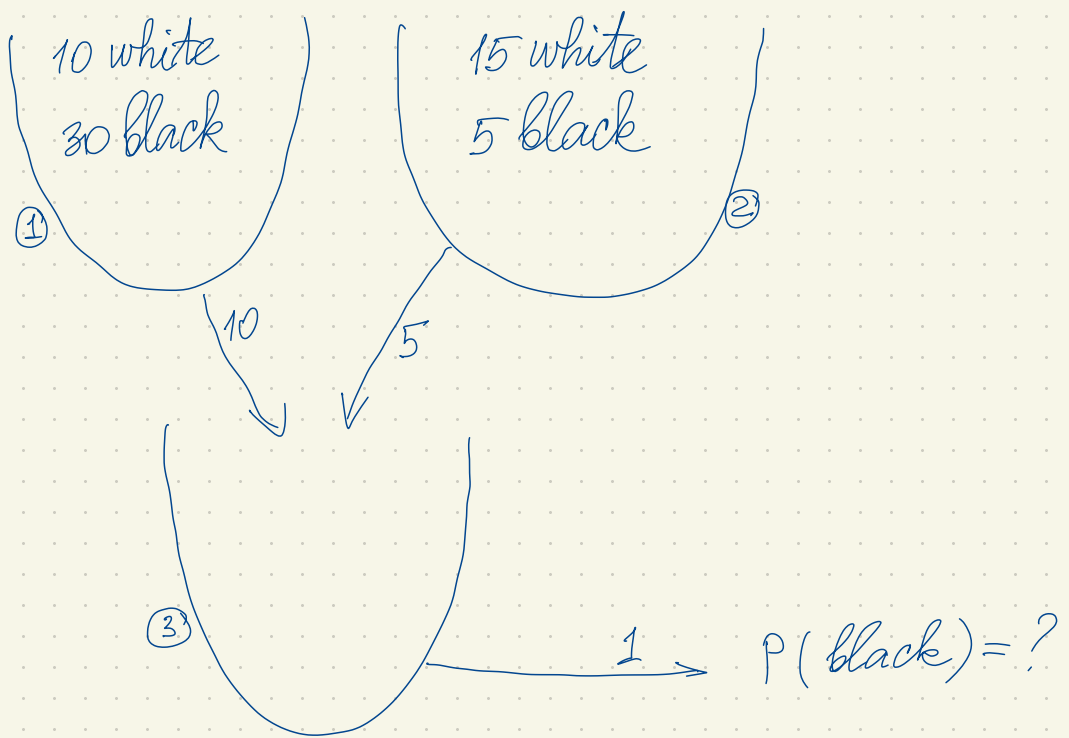 10 white
30 black
①
15 white
5 black
②
10
5
③
1
P(black)=?